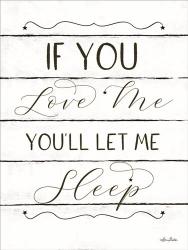 IF YOU
Love Me
YOU'LL LET ME
Sleep